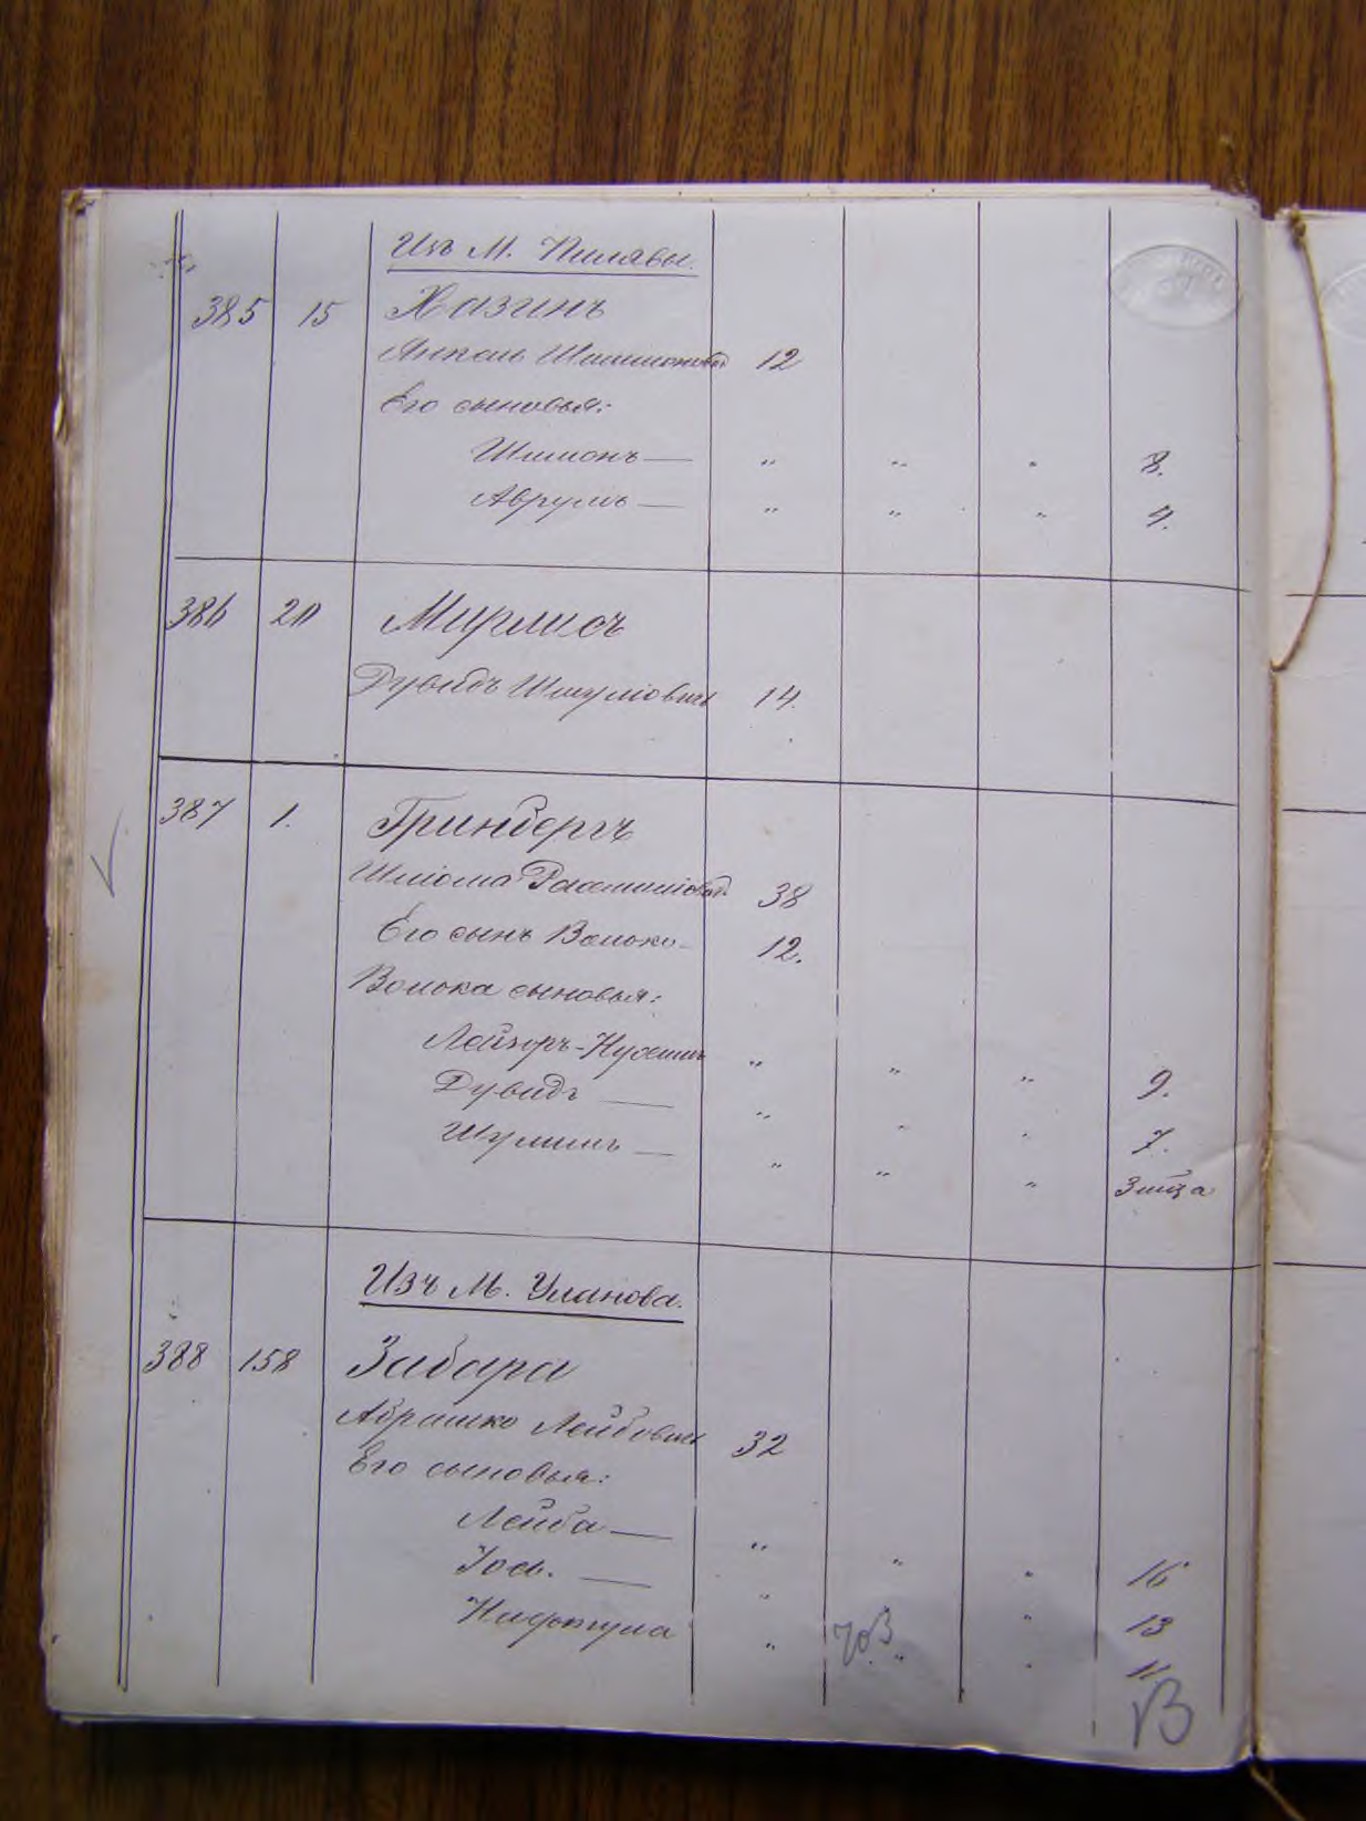 Изъ М. Пилявы.
385 15 Хазинъ
Янкель Шлимоновъ 12
Его сыновья:
Шимонъ — " " " 8.
Аврумъ — " " " 4.
386 20 Мирлисъ
Дувидъ Шмуліовичъ 14.
387 1. Гринбергъ
Шліома 38
Его сынъ Волько 12.
Волька сыновья:
Лейзоръ-Нухимъ " " " 9.
Дувидъ — " " " 7.
Шулимъ — " " "
Изъ М. Уланова.
388 158 Забара
Абрашко Лейбовичъ 32
Его сыновья:
Лейба — " " " 16
Іось. — " " " 13
Нафтула " " " 11